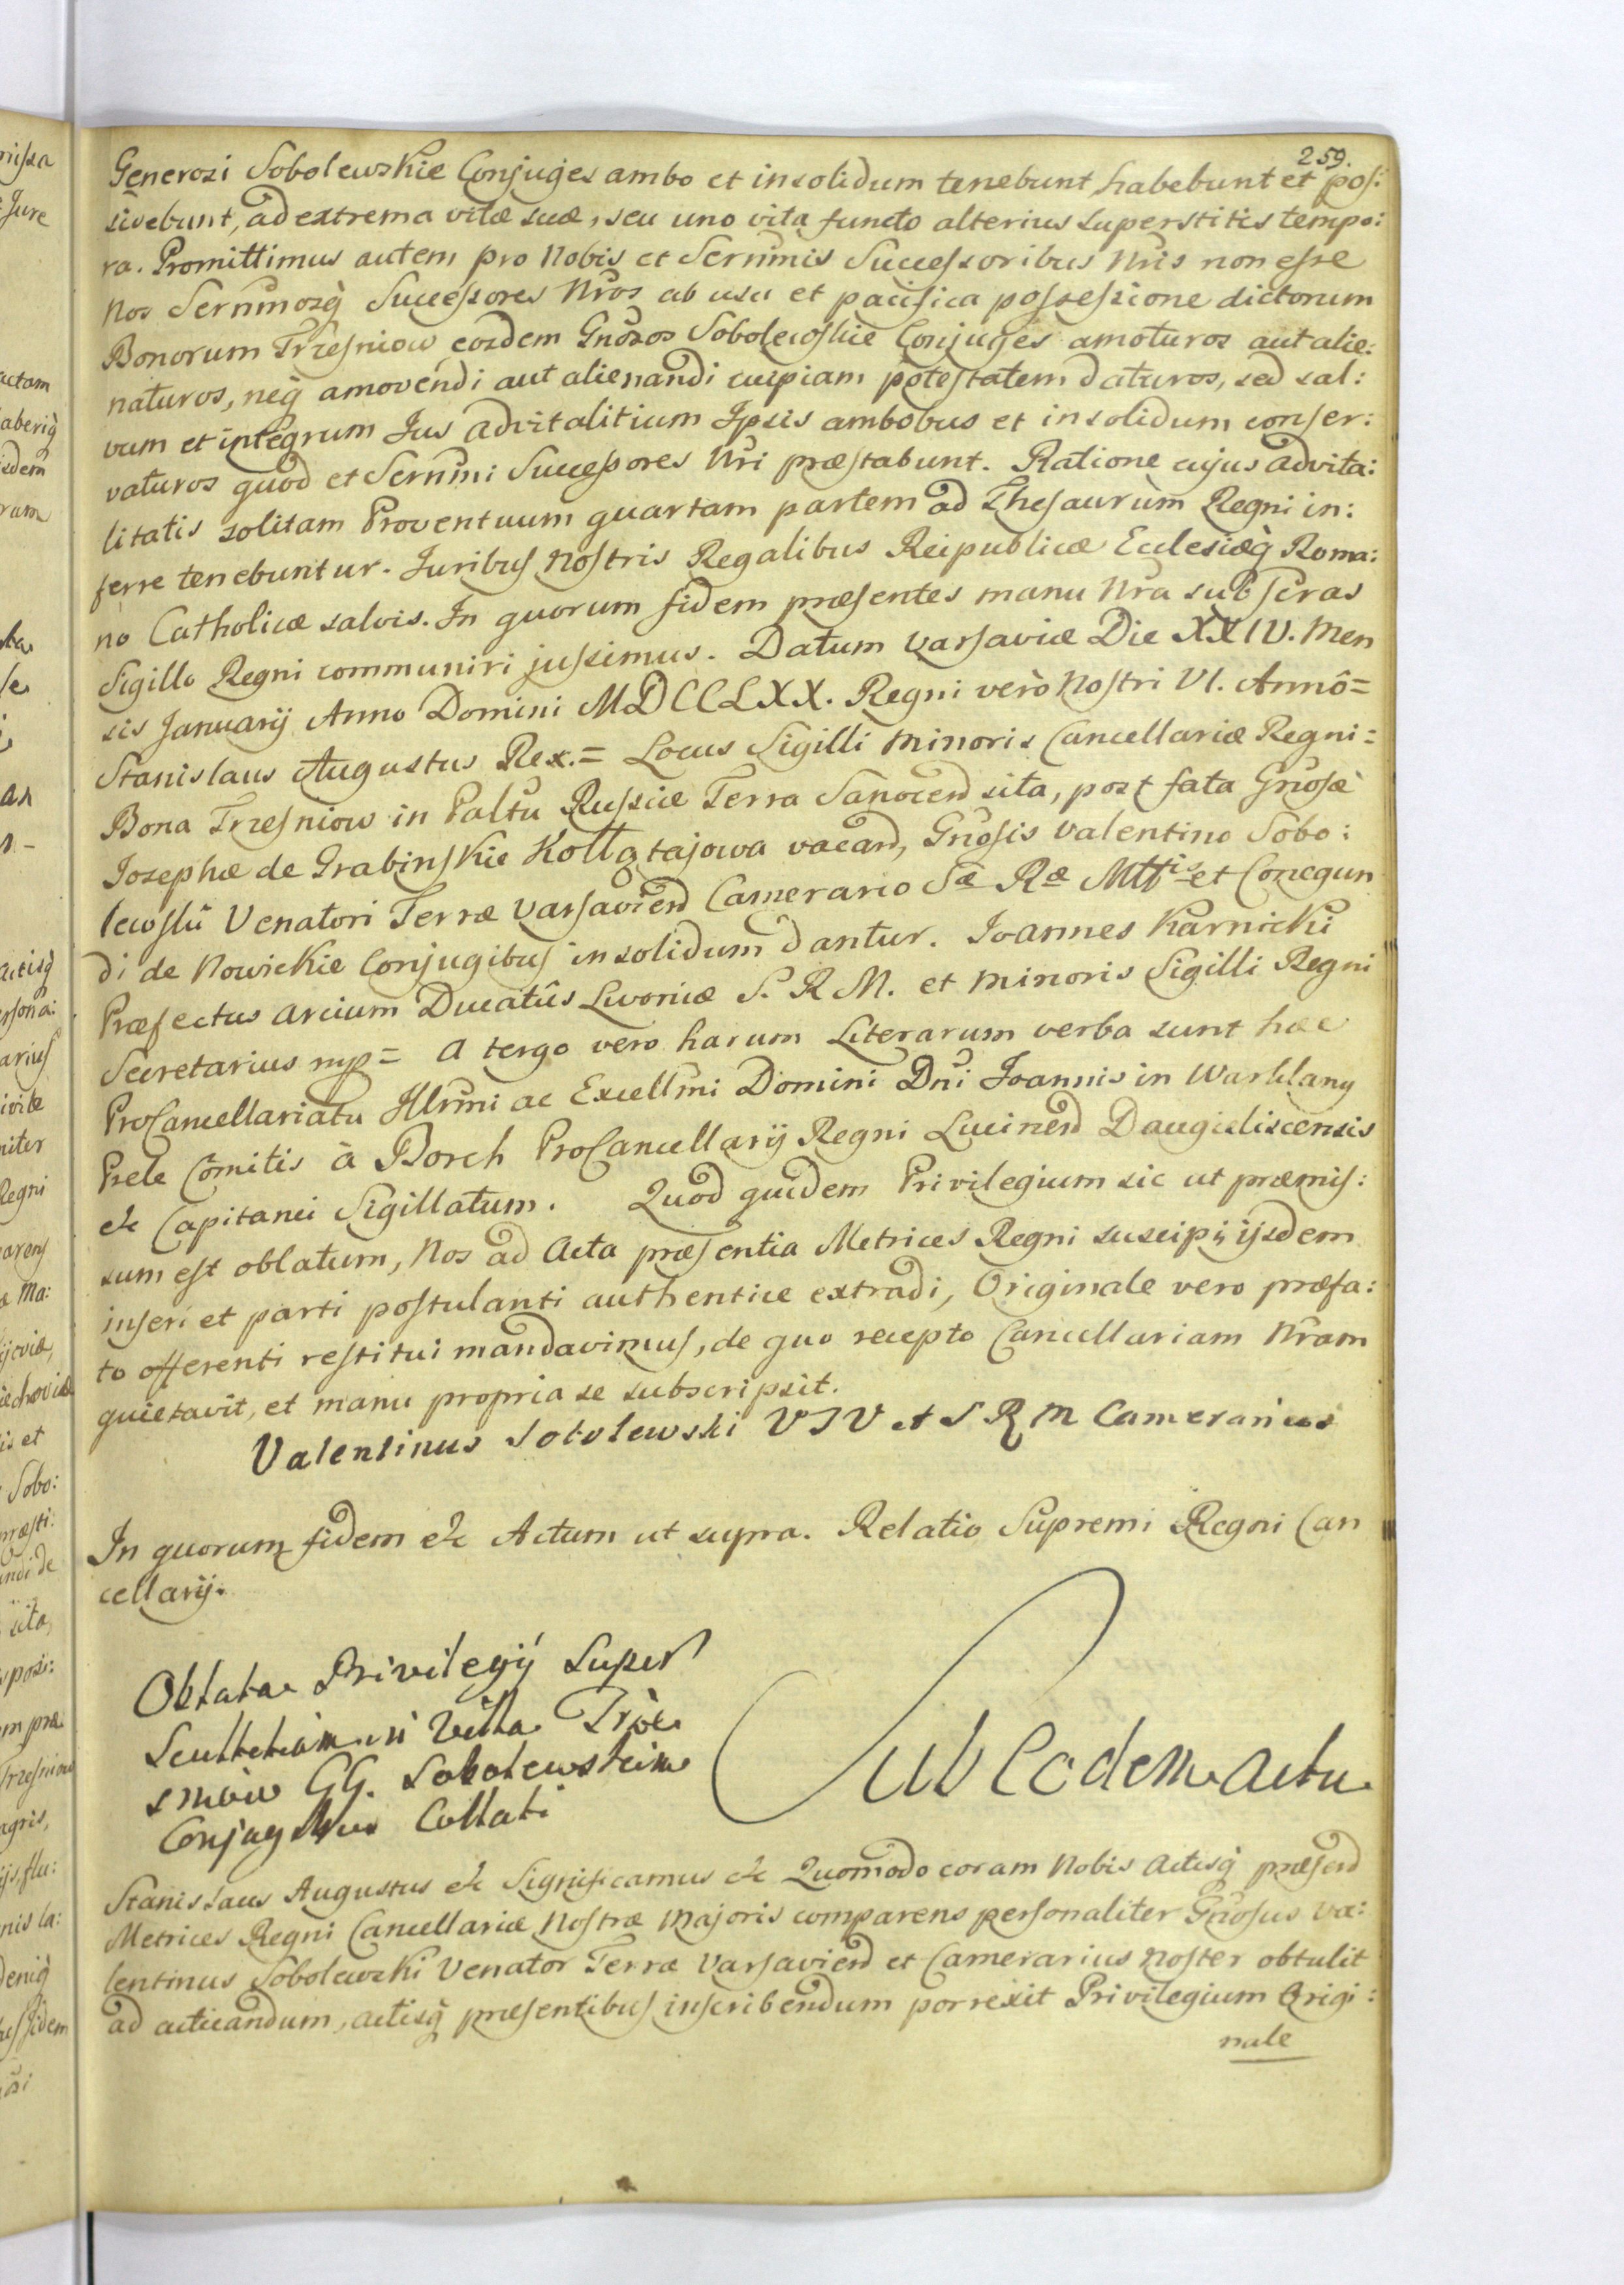 259.
Generosi Sobolewskie Conjuges ambo et insolidum tenebunt habebunt et pos:
sidebunt, ad extrema vitæ suæ, seu uno vita functo alterius superstitis tempo:
ra. Promittimus autem pro Nobis et Sernmis Successoribus Nris non esse
Nos Sernmosq Successores Nros ab usu et pacifica possessione dictorum
Bonorum Trzesniow eosdem Gnosos Sobolewskie Conjuges amoturos aut alie:
naturos, neq amovendi aut alienandi cuipiam potestatem daturos, sed sal:
vum et integrum Jus advitalitium Ipsis ambobus et insolidum conser:
vaturos quod et Sernmi Successores Nri præstabunt. Ratione cujus advita:
litatis solitam Proventuum quartam partem ad Thesaurum Regni in:
ferre tenebuntur. Juribus Nostris Regalibus Reipublicæ Ecclesiæq Roma:
no Catholicæ salvis. In quorum fidem præsentes manu Nra subscras
Sigillo Regni communiri jussimus. Datum Varsaviæ Die XXIV. Men
sis Januarij Anno Domini MDCCLXX. Regni verò Nostri VI. Annô=
Stanislaus Augustus Rex.= Locus Sigilli Minoris Cancellariæ Regni=
Bona Trzesniow in Paltu Russiæ Terra Sanocen sita, post fata Gnosæ
Josephæ de Grabinskie Kołłątajowa vacan, Gnosis Valentino Sobo:
lewski Venatori Terræ Varsavien Camerario Sæ Ræ Mttis et Conegun
di de Nowickie Conjugibus insolidum dantur. Joannes Karnicki
Præfectus arcium Ducatûs Livoniæ S. R M. et Minoris Sigilli Regni
Secretarius mp= A tergo vero harum Literarum verba sunt hæc
ProCancellariatu Illrmi ac Excellmi Domini Dni Joannis in Warklany
Prele Comitis à Borch ProCancellarij Regni Lucinen Daugieliscensis
etc Capitanei Sigillatum. Quod quidem Privilegium sic ut præmis:
sum est oblatum, Nos ad Acta præsentia Metrices Regni suscipi, ijsdem
inseri et parti postulanti authentice extradi, Originale vero præfa:
to offerenti restitui mandavimus, de quo recepto Cancellariam Nram
quietavit, et manu propria se subscripsit.
Valentinus Sobolewski V T V et S R M Camerarius
In quorum fidem etc Actum ut supra. Relatio Supremi Regni Can
cellarij.
Oblata Privilegij super
Scultetiam in Villa Trze
sniow GG. Sobolewskim
Conjugibus Collati
Sub Eodem actu
Stanislaus Augustus etc Significamus etc Quomodo coram Nobis Actisq præsen
Metrices Regni Cancellariæ Nostræ Majoris comparens personaliter Gnosus Va:
lentinus Sobolewski Venator Terræ Varsavien et Camerarius Noster obtulit
ad acticandum, actisq præsentibus inscribendum porrexit Privilegium Origi:
nale